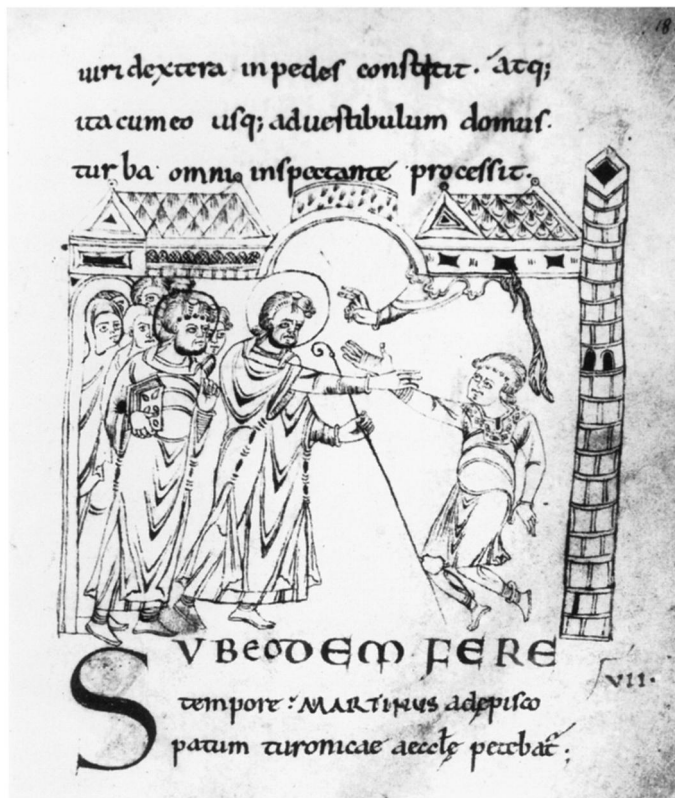 18
uiri dextera in pedes constitit. atq;
ita cum eo usq; ad uestibulum domus.
turba omni inspectante processit.
SUB EODEM FERE
VII.
tempore: MARTINUS ad episco
patum turonicae aeccle petebat;